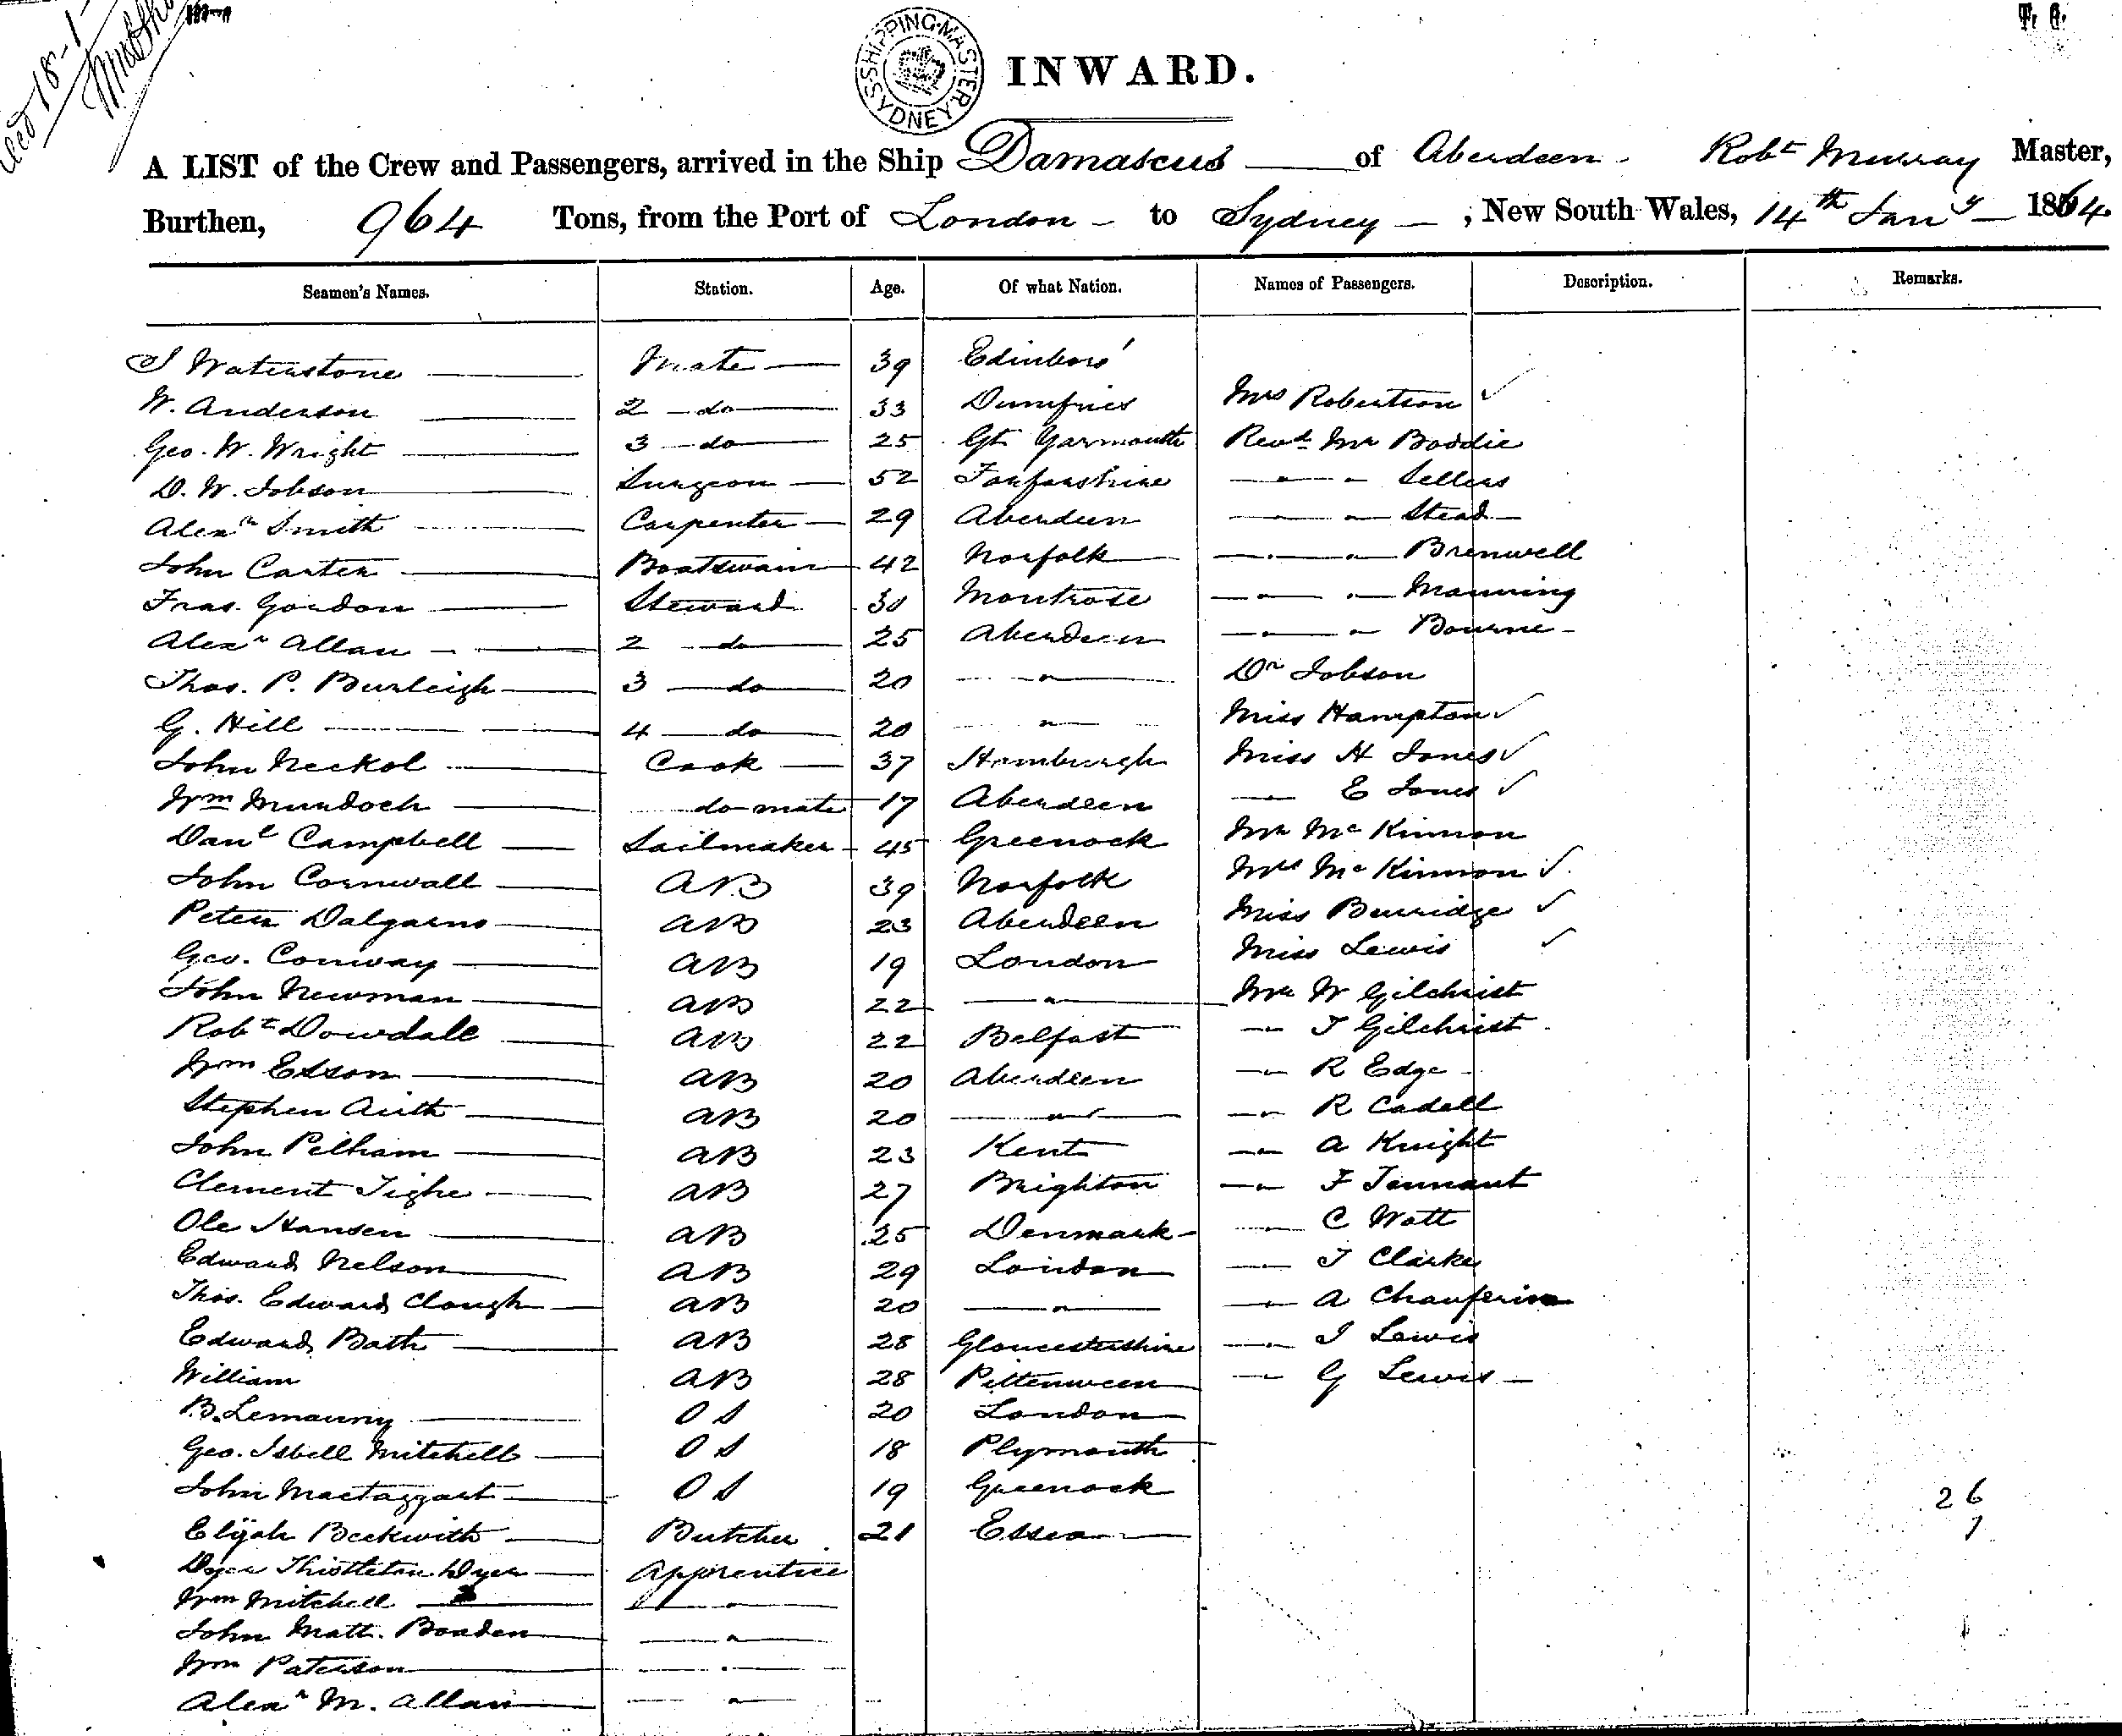 SHIPPING MASTER SYDNEY
T. C.
INWARD.
A LIST of the Crew and Passengers, arrived in the Ship Damascus of Aberdeen Robt Murray Master,
Burthen, 964 Tons, from the Port of London to Sydney, New South Wales, 14th Jany 1864.
Seamen's Names. Station. Age. Of what Nation. Names of Passengers. Description. Remarks.
J Waterstone Mate 39 Edinboro'
W. Anderson 2 do 33 Dumfries Mrs Robertson ✓
Geo. W. Wright 3 do 25 Gt Yarmouth Revd Mr Boddie
D. W. Jobson Surgeon 52 Forfarshire " " Sellers
Alexr Smith Carpenter 29 Aberdeen " " Stead
John Carter Boatswain 42 Norfolk " " Brenwell
Fras. Gordon Steward 30 Montrose " " Manning
Alexr Allan 2 do 25 Aberdeen " " Bourne
Thos. P. Burleigh 3 do 20 " Dr Jobson
G. Hill 4 do 20 " Miss Hampton ✓
John Neckol Cook 37 Hamburgh Miss H Jones ✓
Wm Murdoch do mate 17 Aberdeen " E Jones ✓
Danl Campbell Sailmaker 45 Greenock Mr McKinnon
John Cornwall AB 39 Norfolk Mrs McKinnon ✓
Peter Dalgarno AB 23 Aberdeen Miss Burridge ✓
Geo. Conway AB 19 London Miss Lewis ✓
John Newman AB 22 " Mr W Gilchrist
Robt Dowdall AB 22 Belfast " J Gilchrist
Wm Esson AB 20 Aberdeen " R Edge
Stephen Airth AB 20 " " R Cadell
John Pelham AB 23 Kent " A Knight
Clement Tighe AB 27 Brighton " F Tennant
Ole Hansen AB 25 Denmark " C Watt
Edward Nelson AB 29 London " J Clarke
Thos. Edward Clough AB 20 " " A
Edward Bath AB 28 Gloucestershire " J Lewis
William AB 28 Pittenween " G Lewis
B. Lemauny OS 20 London
Geo. Isbell Mitchell OS 18 Plymouth
John Mactaggart OS 19 Greenock 26
Elijah Beckwith Butcher 21 Essex 1
Dyer Thistleton Dyer Apprentice
Wm Mitchell "
John Matt. Boaden "
Wm Paterson "
Alexr M. Allan "